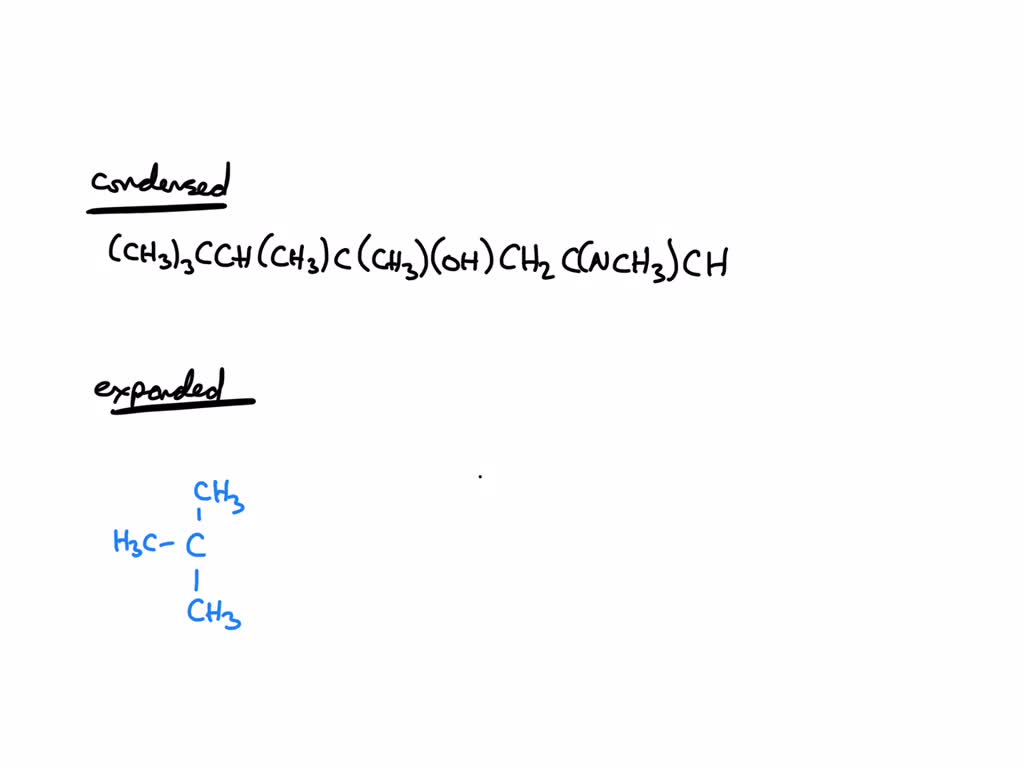 condensed
(CH₃)₃CCH(CH₃)C(CH₃)(OH)CH₂C(NCH₃)CH
expanded
CH₃
H₃C-C
CH₃